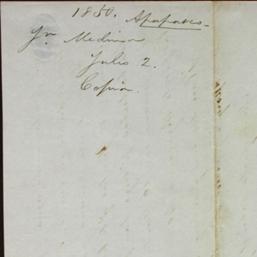 1850. Apaparo.
Jn. Medina
Julio 2.
Copia.